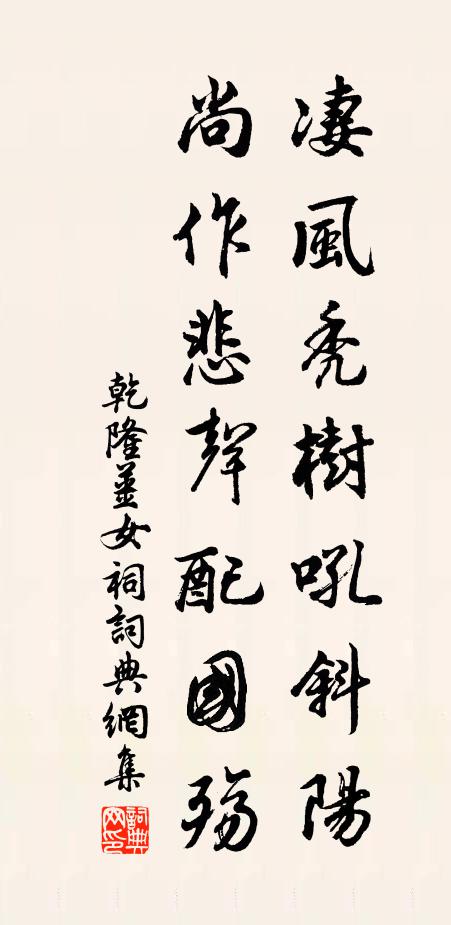 凄風禿樹吼斜陽
尚作悲聲配國殤
乾隆薑女祠詞典網集
詞典網印